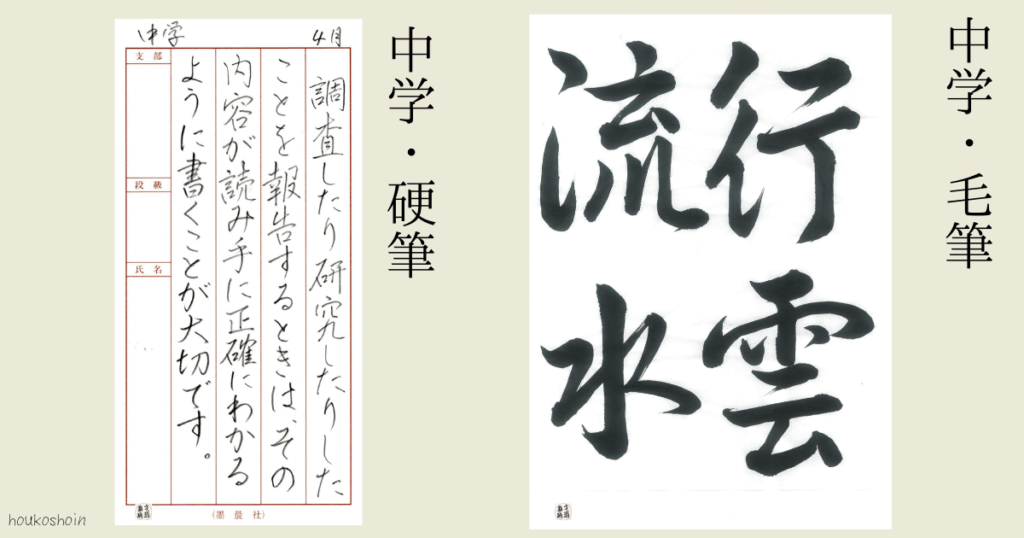 中学・毛筆
行雲
流水
中学・硬筆
中学
4月
調査したり研究したりした
ことを報告するときは、その
内容が読み手に正確にわかる
ように書くことが大切です。
支部
段級
氏名
(墨晨社)
houkoshoin